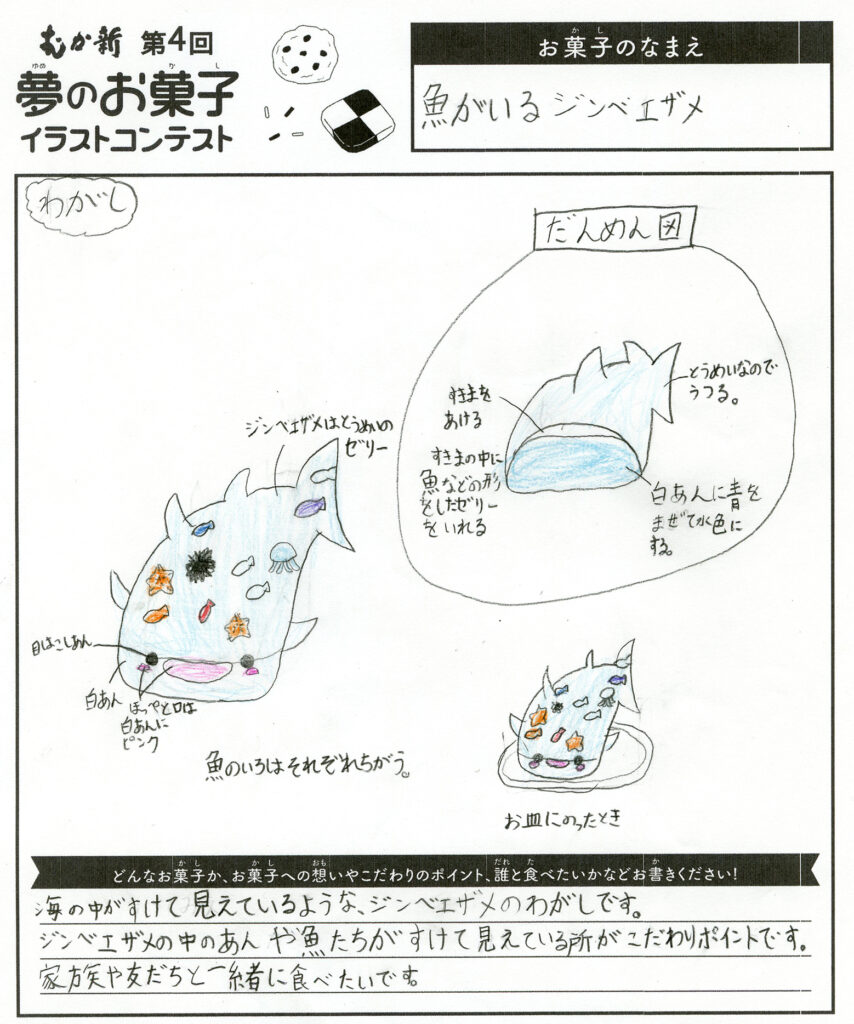 むか新 第4回
夢のお菓子
イラストコンテスト
お菓子のなまえ
魚がいるジンベエザメ
わがし
だんめん図
すきまを
あける
とうめいなので
うつる。
すきまの中に
魚などの形
をしたゼリー
をいれる
白あんに青を
まぜて水色に
する。
ジンベエザメはとうめいの
ゼリー
目はこしあん
白あん
ほっぺと口は
白あんに
ピンク
魚のいろはそれぞれちがう。
お皿にのったとき
どんなお菓子か、お菓子への想いやこだわりのポイント、誰と食べたいかなどお書きください!
海の中がすけて見えているような、ジンベエザメのわがしです。
ジンベエザメの中のあんや魚たちがすけて見えている所がこだわりポイントです。
家族や友だちと一緒に食べたいです。